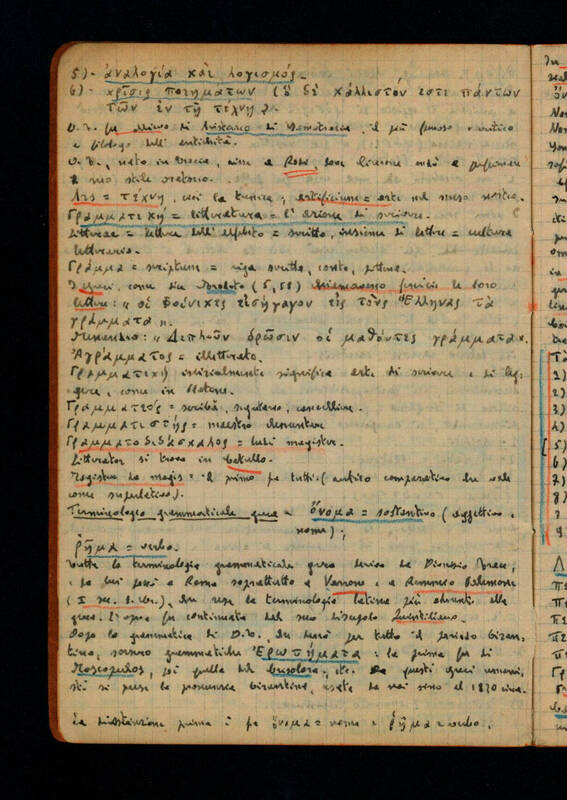 5)- ἀναλογία καὶ λογισμός.-
6)- κρῖσις ποιημάτων (ὃ δὲ κάλλιστόν ἐστι πάντων
τῶν ἐν τῇ τέχνῃ).
D. T. fu allievo di Aristarco di Samotracia, il più famoso critico
e filologo dell' antichità.
D. T., nato in Tracia, visse a Rodi, dove Cicerone andò a perfezionare
il suo stile oratorio.
Ars = τέχνη, cioè la tecnica; artificium = arte nel senso nostro.
Γραμματική = litteratura = l'azione di scrivere.
Litterae = lettere dell'alfabeto = scritto, insieme di lettere = cultura
letteraria.
Γράμμα = scriptum = riga scritta, conto, lettera.
I Greci, come dice Erodoto (5, 58) chiamavano fenicie le loro
lettere: "οἱ Φοίνικες εἰσήγαγον εἰς τοὺς Ἕλληνας τὰ
γράμματα".
Menandro: "Διπλοῦν ὁρῶσιν οἱ μαθόντες γράμματα".
Ἀγράμματος = illetterato.
Γραμματική inizialmente significa arte di scrivere e di leg-
gere, come in Platone.
Γραμματεύς = scriba, segretario, cancelliere.
Γραμματιστής = maestro elementare
Γραμματοδιδάσκαλος = ludi magister.
Litterator si trova in Catullo.
Magister da magis = il primo fra tutti (antico comparativo che vale
come superlativo).
Terminologia grammaticale greca = ὄνομα = sostantivo (aggettivo e
nome);
ῥῆμα = verbo.
Tutta la terminologia grammaticale greca deriva da Dionisio Trace,
e da lui passò a Roma soprattutto a Varrone, e a Remmio Palemone
(I sec. d. Cr.), che rese la terminologia latina più aderente alla
greca. L'opera fu continuata dal suo discepolo Quintiliano.
Dopo la grammatica di D. T., che durò per tutto il periodo bizan-
tino, sorsero grammatiche Ἐρωτήματα: la prima fu di
Moscopulos, poi quella del Crisolora, etc. Da questi greci umani-
sti si prese la pronuncia bizantina, usata da noi sino al 1870 circa.
La distinzione prima è fra ὄνομα = nome e ῥῆμα = verbo.